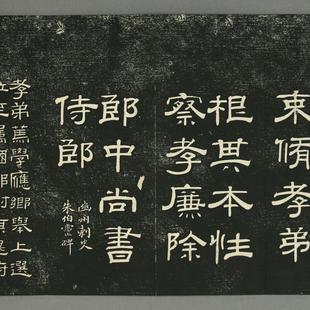 束脩孝弟
根其本性
察孝廉除
郎中尚書
侍郎
幽州刺史
朱伯靈碑
孝弟蔦學應鄉舉上選